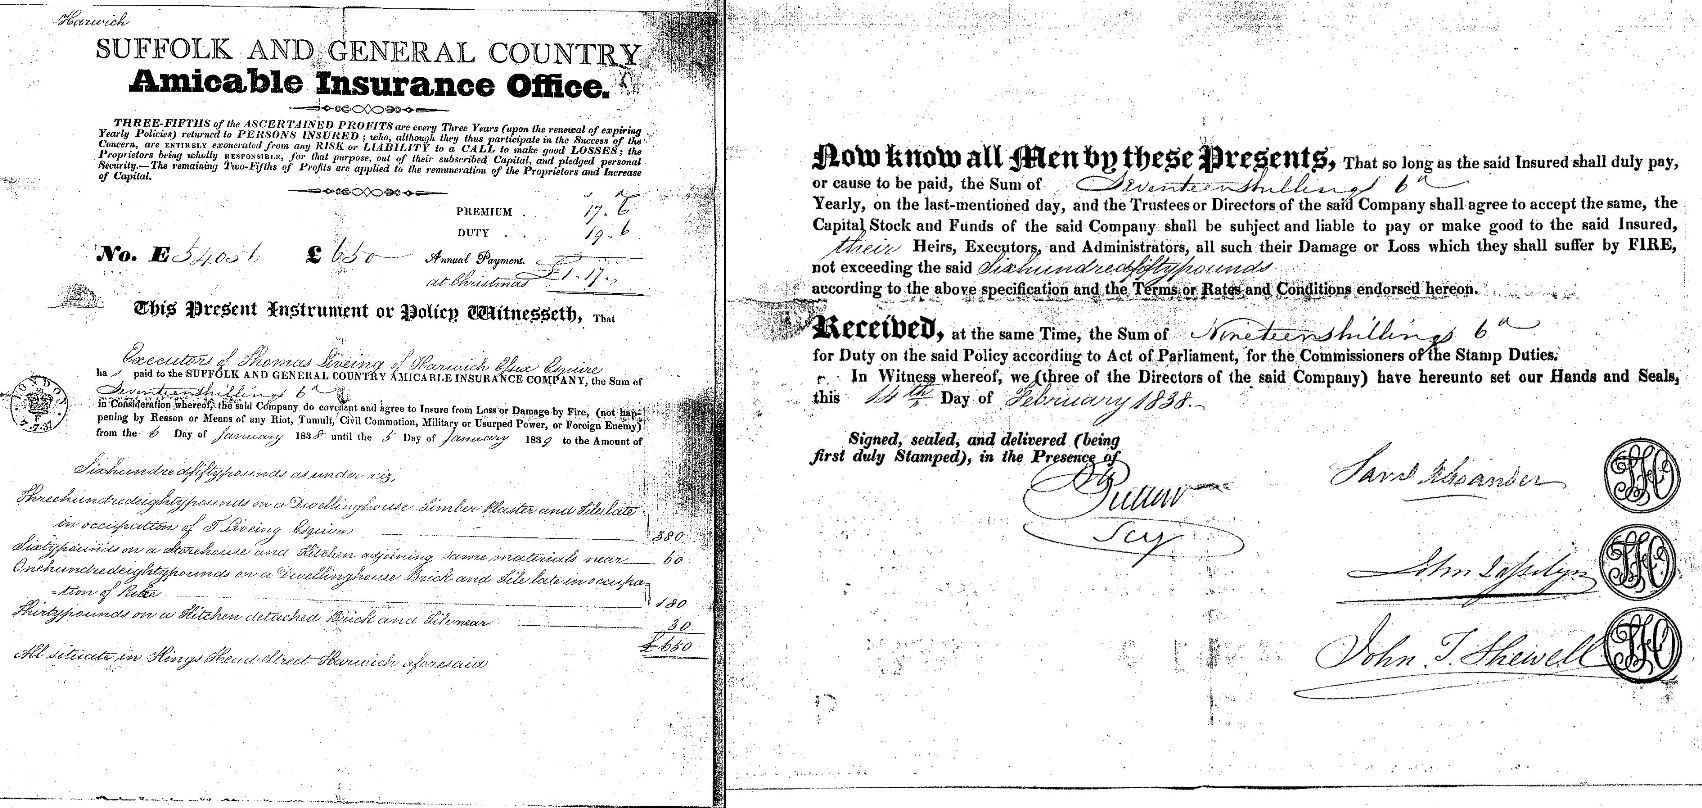 Harwich
SUFFOLK AND GENERAL COUNTRY
Amicable Insurance Office.
THREE-FIFTHS of the ASCERTAINED PROFITS are every Three Years (upon the renewal of expiring
Yearly Policies) returned to PERSONS INSURED; who, although they thus participate in the Success of the
Concern, are ENTIRELY exonerated from any RISK or LIABILITY to a CALL to make good LOSSES; the
Proprietors being wholly RESPONSIBLE, for that purpose, out of their subscribed Capital, and pledged personal
Security.—The remaining Two-Fifths of Profits are applied to the remuneration of the Proprietors and Increase
of Capital.
PREMIUM . 17. 6
DUTY . . 19. 6
No. E 54051 £ 650— Annual Payment.
at Christmas £1. 17. –
This Present Instrument or Policy Witnesseth, That
Executors of Thomas Liveing of Harwich Essex Esquire
ha paid to the SUFFOLK AND GENERAL COUNTRY AMICABLE INSURANCE COMPANY, the Sum of
Seventeenshillings 6d
in Consideration whereof, the said Company do covenant and agree to Insure from Loss or Damage by Fire, (not hap-
pening by Reason or Means of any Riot, Tumult, Civil Commotion, Military or Usurped Power, or Foreign Enemy)
from the 6 Day of January 1838 until the 5 Day of January 1839 to the Amount of
LONDON
F
7.7.37
Sixhundredfiftypounds as under viz,
Threehundredeightypounds on a Dwellinghouse Timber Plaster and Tile late
in occupation of T Liveing Esquire — 380
Sixtypounds on a Storehouse and Kitchen adjoining same materials near — 60
Onehundredeightypounds on a Dwellinghouse Brick and Tile late in occupa-
-tion of — 180
Thirtypounds on a Kitchen detached Brick and Tile near — 30
£650
All situate in Kings Head Street Harwich aforesaid
Now know all Men by these Presents, That so long as the said Insured shall duly pay,
or cause to be paid, the Sum of Seventeenshillings 6d
Yearly, on the last-mentioned day, and the Trustees or Directors of the said Company shall agree to accept the same, the
Capital Stock and Funds of the said Company shall be subject and liable to pay or make good to the said Insured,
their Heirs, Executors, and Administrators, all such their Damage or Loss which they shall suffer by FIRE,
not exceeding the said Sixhundredfiftypounds
according to the above specification and the Terms or Rates and Conditions endorsed hereon.
Received, at the same Time, the Sum of Nineteenshillings 6d
for Duty on the said Policy according to Act of Parliament, for the Commissioners of the Stamp Duties.
In Witness whereof, we (three of the Directors of the said Company) have hereunto set our Hands and Seals,
this 14th Day of February 1838.
Signed, sealed, and delivered (being
first duly Stamped), in the Presence of
Secy
Saml Alexander
John Josselyn
John T. Shewell